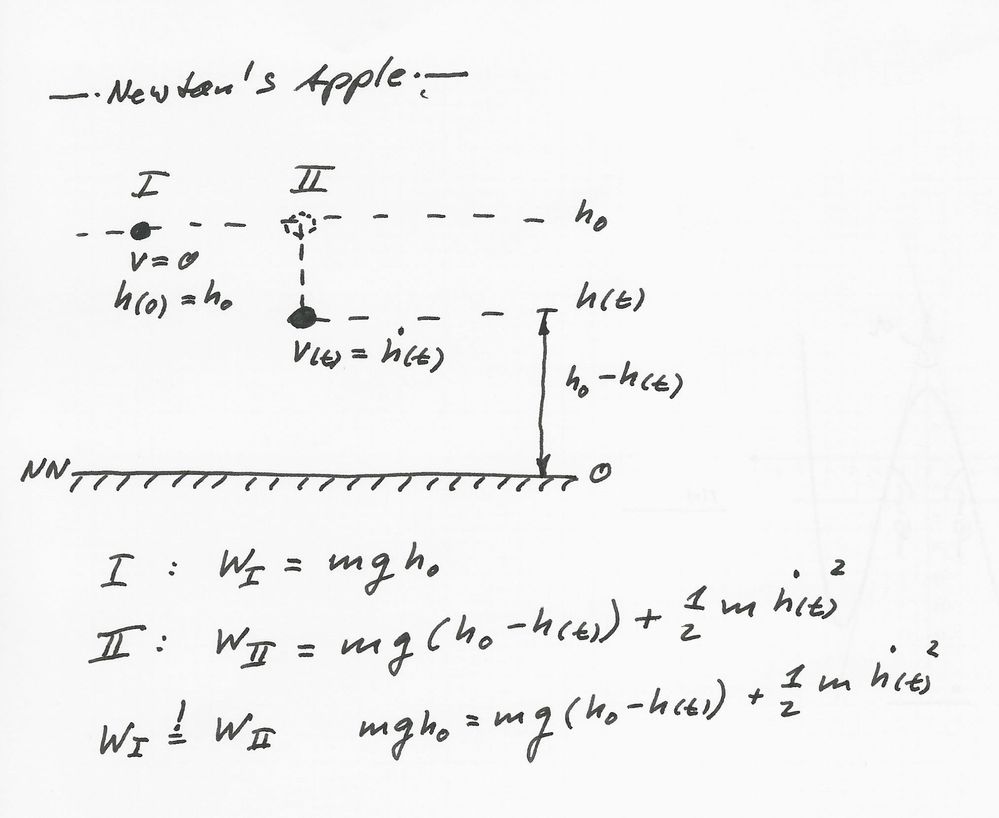 —·Newton's Apple·—
I II
h₀
v=0
h(0)=h₀
h(t)
v(t)=ḣ(t)
h₀-h(t)
NN 0
I : W_I = mgh₀
II : W_II = mg(h₀-h(t)) + ½ m ḣ(t)²
W_I ≝ W_II mgh₀ = mg(h₀-h(t)) + ½ m ḣ(t)²